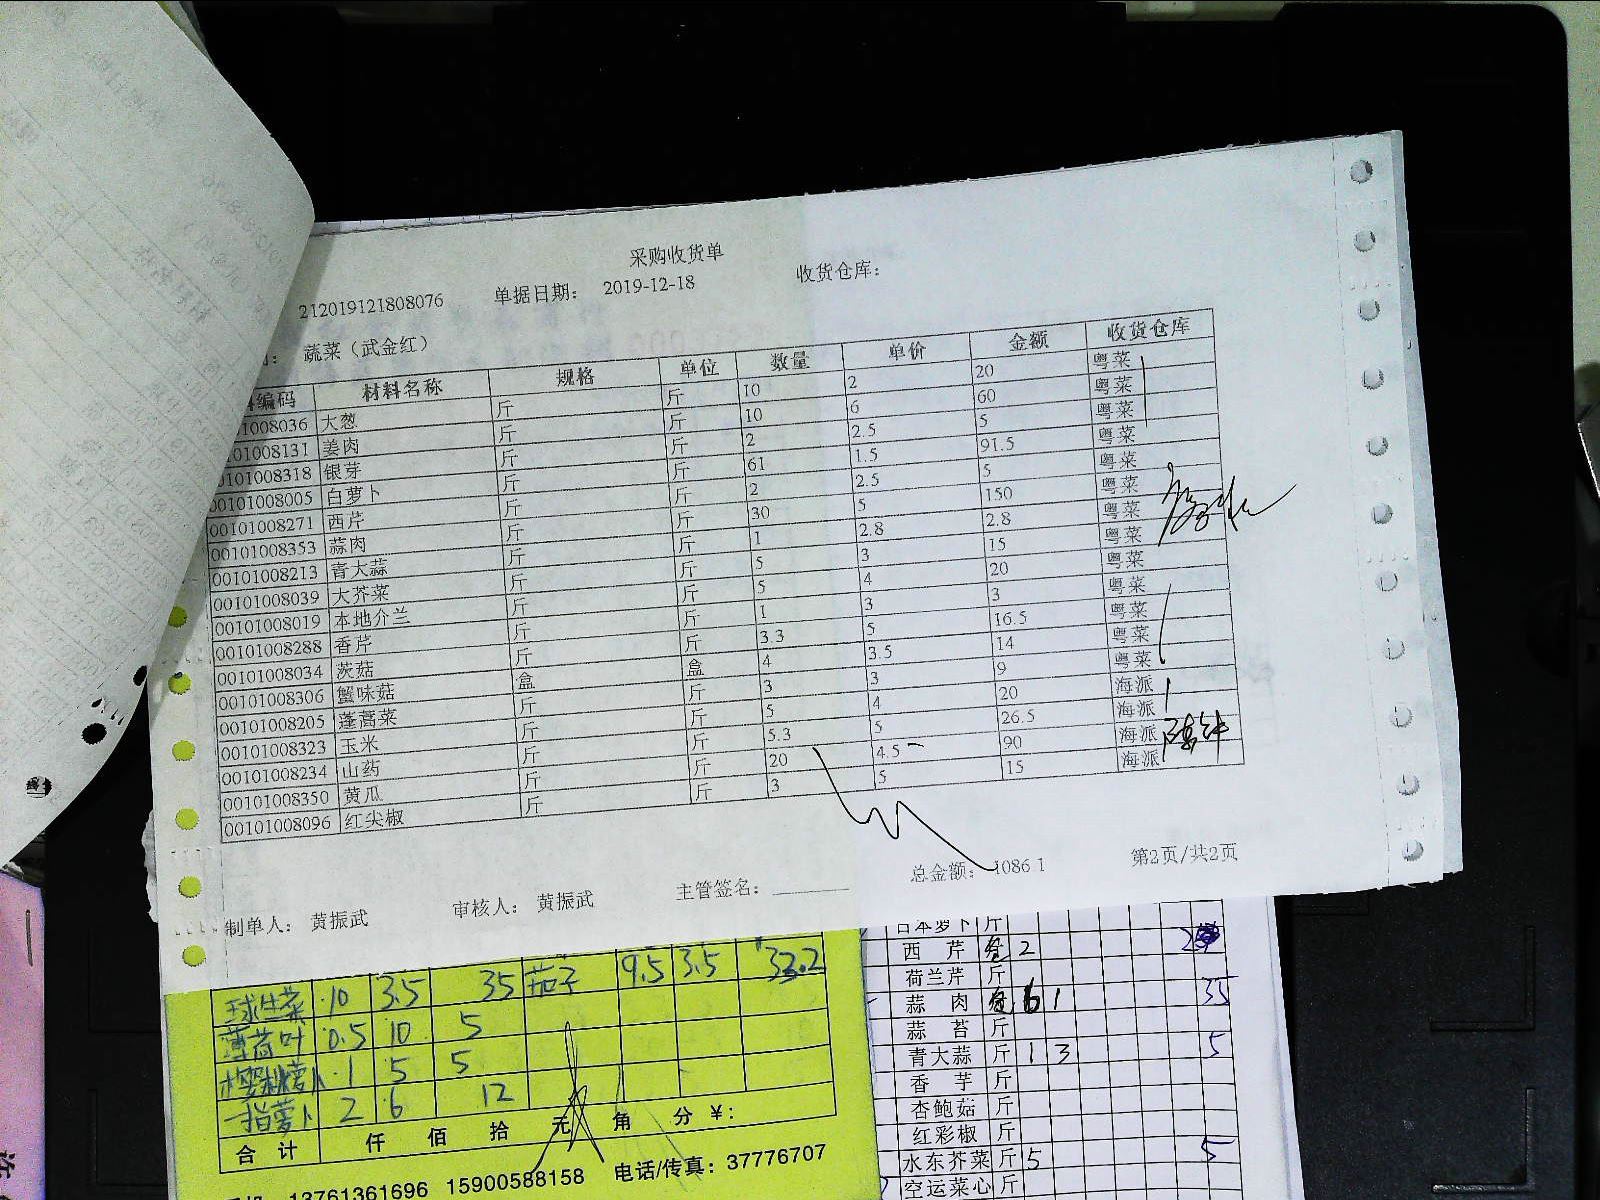 采购收货单
212019121808076 单据日期： 2019-12-18 收货仓库：
蔬菜（武金红）
编码 材料名称 规格 单位 数量 单价 金额 收货仓库
01008036 大葱 斤 斤 10 2 20 粤菜
101008131 姜肉 斤 斤 10 6 60 粤菜
0101008318 银芽 斤 斤 2 2.5 5 粤菜
00101008005 白萝卜 斤 斤 61 1.5 91.5 粤菜
00101008271 西芹 斤 斤 2 2.5 5 粤菜
00101008353 蒜肉 斤 斤 30 5 150 粤菜
00101008213 青大蒜 斤 斤 1 2.8 2.8 粤菜
00101008039 大芥菜 斤 斤 5 3 15 粤菜
00101008019 本地介兰 斤 斤 5 4 20 粤菜
00101008288 香芹 斤 斤 1 3 3 粤菜
00101008034 茨菇 斤 斤 3.3 5 16.5 粤菜
00101008306 蟹味菇 盒 盒 4 3.5 14 粤菜
00101008205 蓬蒿菜 斤 斤 3 3 9 粤菜
00101008323 玉米 斤 斤 5 4 20 海派
00101008234 山药 斤 斤 5.3 5 26.5 海派
00101008350 黄瓜 斤 斤 20 4.5 90 海派
00101008096 红尖椒 斤 斤 3 5 15 海派
总金额： 1086.1 第2页/共2页
制单人： 黄振武 审核人： 黄振武 主管签名：
球生菜 10 3.5 35 茄子 9.5 3.5 33.2
薄荷叶 0.5 10 5
樱桃萝卜 1 5 5
指萝卜 2 6 12
合计 仟 佰 拾 元 角 分 ¥：
13761361696 15900588158 电话/传真：37776707
日本萝卜 斤
西 芹 2
荷兰芹 斤
蒜 肉 61 35
蒜 苔 斤
青大蒜 斤 1 3 5
香 芋 斤
杏鲍菇 斤
红彩椒 斤
水东芥菜 斤 5 5
空运菜心 斤